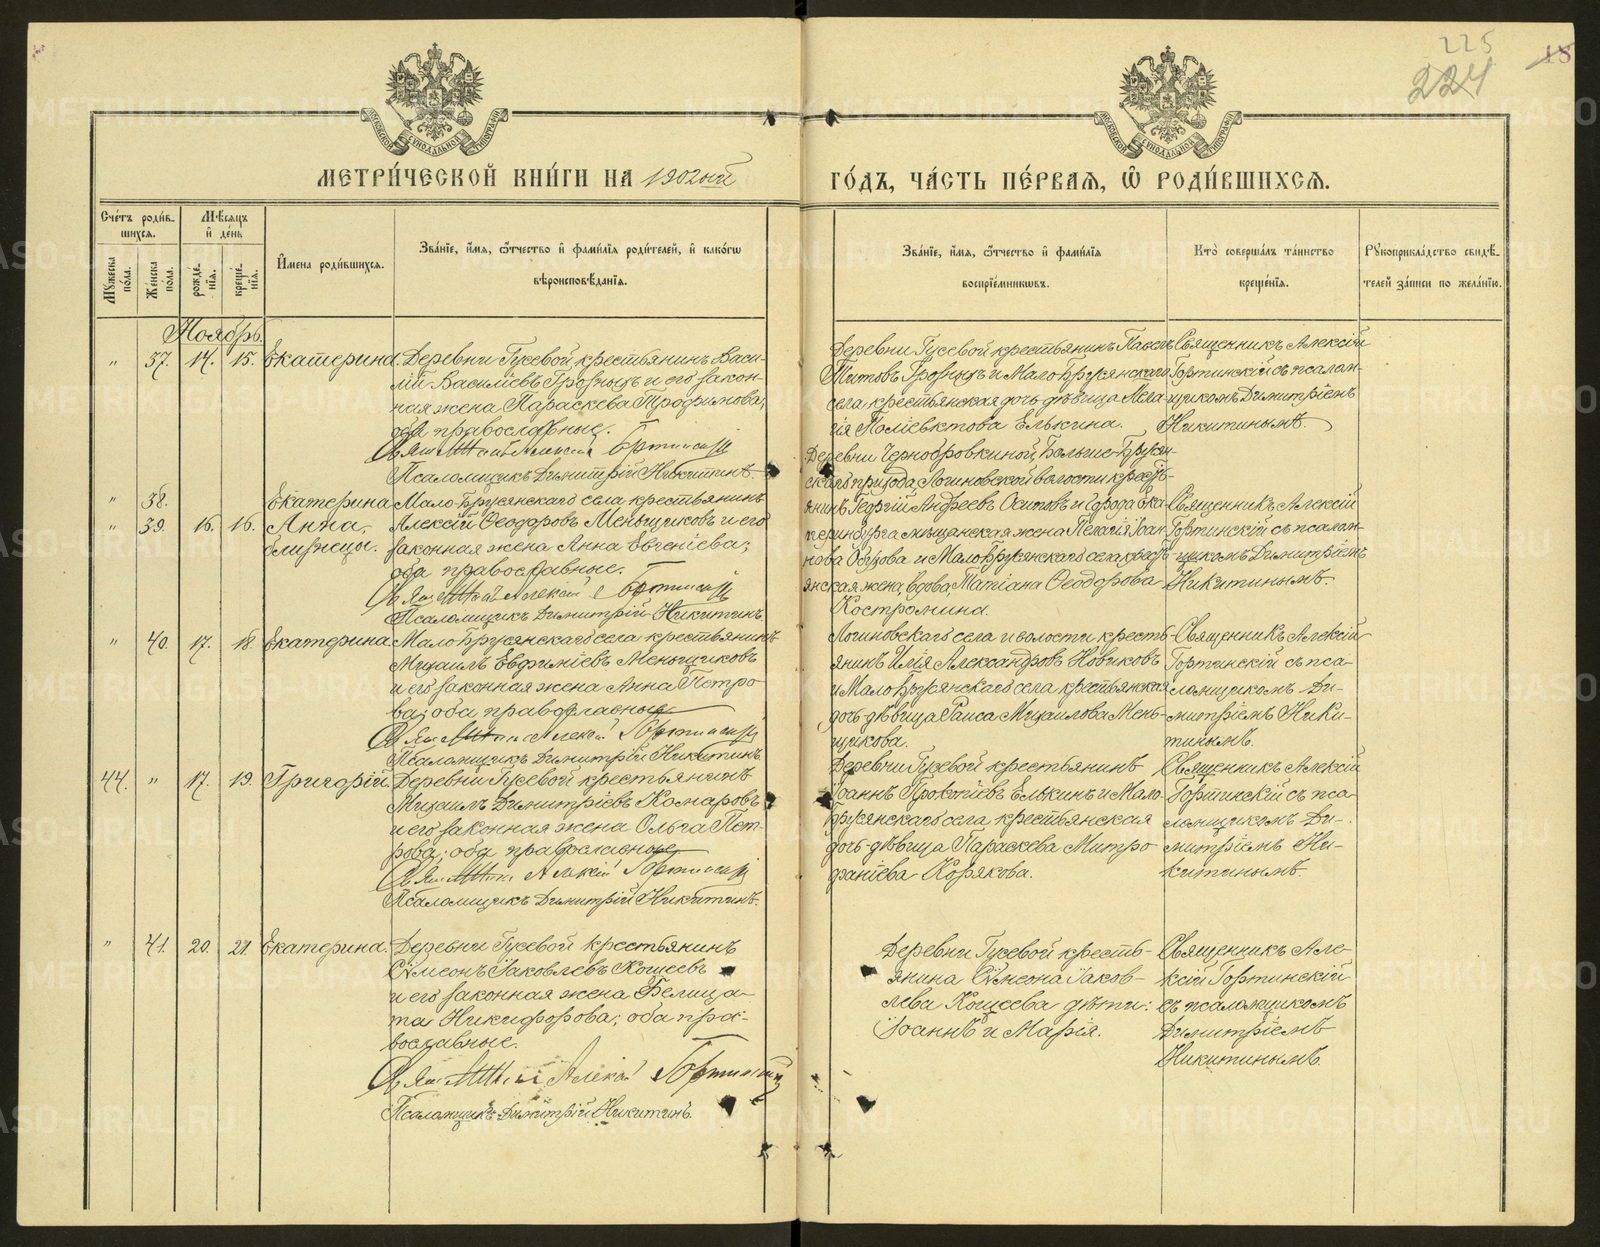 225
224
18
МЕТРИ́ЧЕСКОЙ КНИ́ГИ НА 1902ый ГО́ДЪ, ЧА́СТЬ ПЕ́РВАѦ, Ѡ҆ РОДИ́ВШИХСѦ.
Сче́тъ роди́в-
шихсѧ.
Мѣ́сѧцъ
и҆ де́нь
Мꙋ́жеска
по́ла.
Же́нска
по́ла.
рожде́-
нїѧ.
креще́-
нїѧ.
И҆мена̀ роди́вшихсѧ.
Зва́нїе, и҆́мѧ, ѻ҆́тчество и҆ фами́лїѧ роди́телей, и҆ како́гѡ
вѣроисповѣ́данїѧ.
Зва́нїе, и҆́мѧ, ѻ҆́тчество и҆ фами́лїѧ
воспрїе́мникѡвъ.
Кто̀ соверша́лъ та́инство
креще́нїѧ.
Рꙋкоприкла́дство свидѣ́-
телей за́писи по жела́нїю.
Ноябрь.
" 37. 14. 15. Екатерина.
Деревни Гусевой крестьянинъ Васи-
лій Васильевъ Грозныхъ и его закон-
ная жена Параскева Трофимова;
оба православные.
Алексій Гортинскій
Псаломщикъ Димитрій Никитинъ.
Деревни Гусевой крестьянинъ Павелъ
Титовъ Грозныхъ и Мало Брусянскаго
села крестьянская дочь дѣвица Пела-
гія Поліевктова Елькина.
Священникъ Алексій
Гортинскій съ псалом-
щикомъ Димитріемъ
Никитинымъ.
" 38. Екатерина
" 39. 16. 16. Анна,
близнецы.
Мало-Брусянскаго села крестьянинъ
Алексій Ѳеодоровъ Меньщиковъ и его
законная жена Анна Евгеніева;
оба православные.
Алексій Гортинскій
Псаломщикъ Димитрій Никитинъ.
Деревни Чернобровкиной, Больше-Брусян-
скаго прихода, Логиновской волости кресть-
янинъ Георгій Андреевъ Осиповъ и города Ека-
теринбурга мѣщанская жена Пелагія Іоан-
нова и Мало Брусянскаго села кресть-
янская жена, вдова, Татіана Ѳеодорова
Костромина.
Священникъ Алексій
Гортинскій съ псалом-
щикомъ Димитріемъ
Никитинымъ.
" 40. 17. 18. Екатерина
Мало Брусянскаго села крестьянинъ
Михаилъ Евфиміевъ Меньщиковъ
и его законная жена Анна Петро-
ва; оба православные
Алексій Гортинскій
Псаломщикъ Димитрій Никитинъ.
Логиновскаго села и волости кресть-
янинъ Илія Александровъ Новиковъ
и Мало Брусянскаго села крестьянская
дочь дѣвица Раиса Михаилова Мень-
щикова.
Священникъ Алексій
Гортинскій съ пса-
ломщикомъ Ди-
митріемъ Ники-
тинымъ.
44. " 17. 19. Григорій.
Деревни Гусевой крестьянинъ
Михаилъ Димитріевъ Комаровъ
и его законная жена Ольга Пет-
рова; оба православные
Алексій Гортинскій
Псаломщикъ Димитрій Никитинъ.
Деревни Гусевой крестьянинъ
Іоаннъ Прокопіевъ Елькинъ и Мало
Брусянскаго села крестьянская
дочь дѣвица Параскева Митро
фаніева Корякова.
Священникъ Алексій
Гортинскій съ пса-
ломщикомъ Ди-
митріемъ Ни-
китинымъ.
" 41. 20. 21. Екатерина.
Деревни Гусевой крестьянинъ
Сѵмеонъ Іаковлевъ Кощеевъ
и его законная жена Фелица-
та Никифорова; оба пра-
вославные.
Алексій Гортинскій
Псаломщикъ Димитрій Никитинъ.
Деревни Гусевой кресть-
янина Сѵмеона Іаков-
лева Кощеева дѣти:
Іоаннъ и Марія.
Священникъ Але-
ксій Гортинскій
съ псаломщикомъ
Димитріемъ
Никитинымъ.